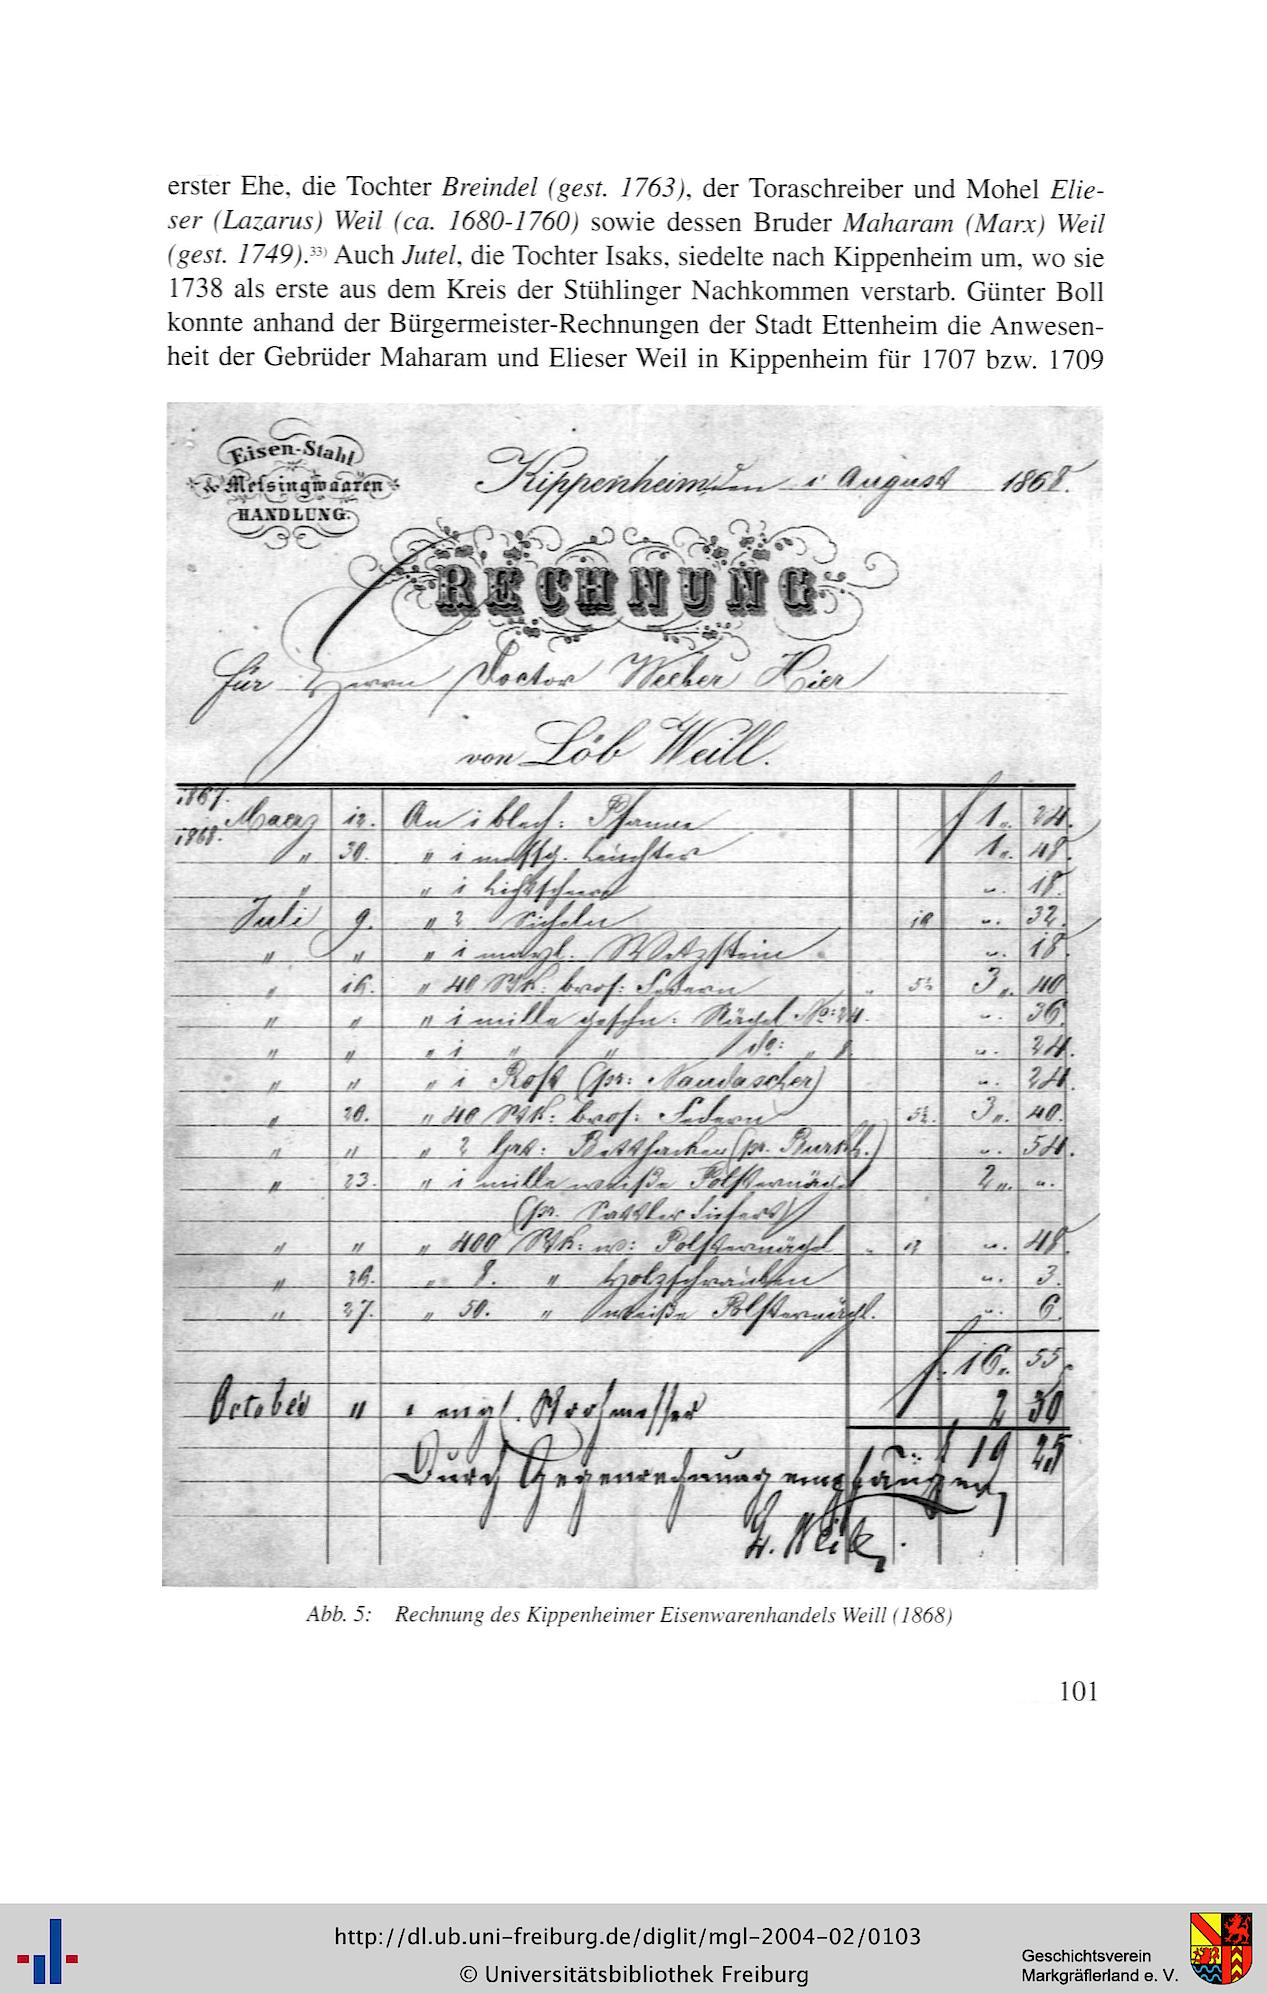 erster Ehe, die Tochter Breindel (gest. 1763), der Toraschreiber und Mohel Elie-
ser (Lazarus) Weil (ca. 1680-1760) sowie dessen Bruder Maharam (Marx) Weil
(gest. 1749).33) Auch Jutel, die Tochter Isaks, siedelte nach Kippenheim um, wo sie
1738 als erste aus dem Kreis der Stühlinger Nachkommen verstarb. Günter Boll
konnte anhand der Bürgermeister-Rechnungen der Stadt Ettenheim die Anwesen-
heit der Gebrüder Maharam und Elieser Weil in Kippenheim für 1707 bzw. 1709
Eisen-Stahl
& Messingwaaren
HANDLUNG.
Kippenheim, den 1 August 1868.
RECHNUNG
für Herrn Doctor Weeber Hier
von Löb Weill.
1867.
Maerz 12. An 1 blech: Pfanne f 1 „ 24.
1868.
„ 30. „ 1 messg. Leuchter 1 „ 48.
„ „ 1 Lichtscheere „ 18.
Juli 9. „ 2 Sicheln 16 „ 32.
„ „ „ 1 Wetzstein „ 18.
„ 16. „ 40 Stk: Federn 5½ 3 „ 40
„ „ „ 1 mille geschn: Nägel No: 24. „ 36.
„ „ „ 1 „ „ do: „ 8 „ 24.
„ „ „ 1 Rost (pr: Naudascher) „ 24.
„ 20. „ 40 Stk: Federn 5½. 3 „ 40.
„ „ „ 2 Betthacken (pr. „ 54.
„ 23. „ 1 mille weiße Polsternägel 2 „ „
(pr. Sattler
„ „ „ 400 Stk: w: Polsternägel „ 12 „ 48.
„ 26. „ 8. „ Holzschrauben „ 3.
„ 27. „ 50. „ weiße Polsternägl. „ 6.
f. 16 „ 55.
October „ 1 engl. Strohmesser 2 30
f 19 25
Durch Gegenrechnung empfangen
L. Weill.
Abb. 5: Rechnung des Kippenheimer Eisenwarenhandels Weill (1868)
101
http://dl.ub.uni-freiburg.de/diglit/mgl-2004-02/0103
© Universitätsbibliothek Freiburg
Geschichtsverein
Markgräflerland e. V.